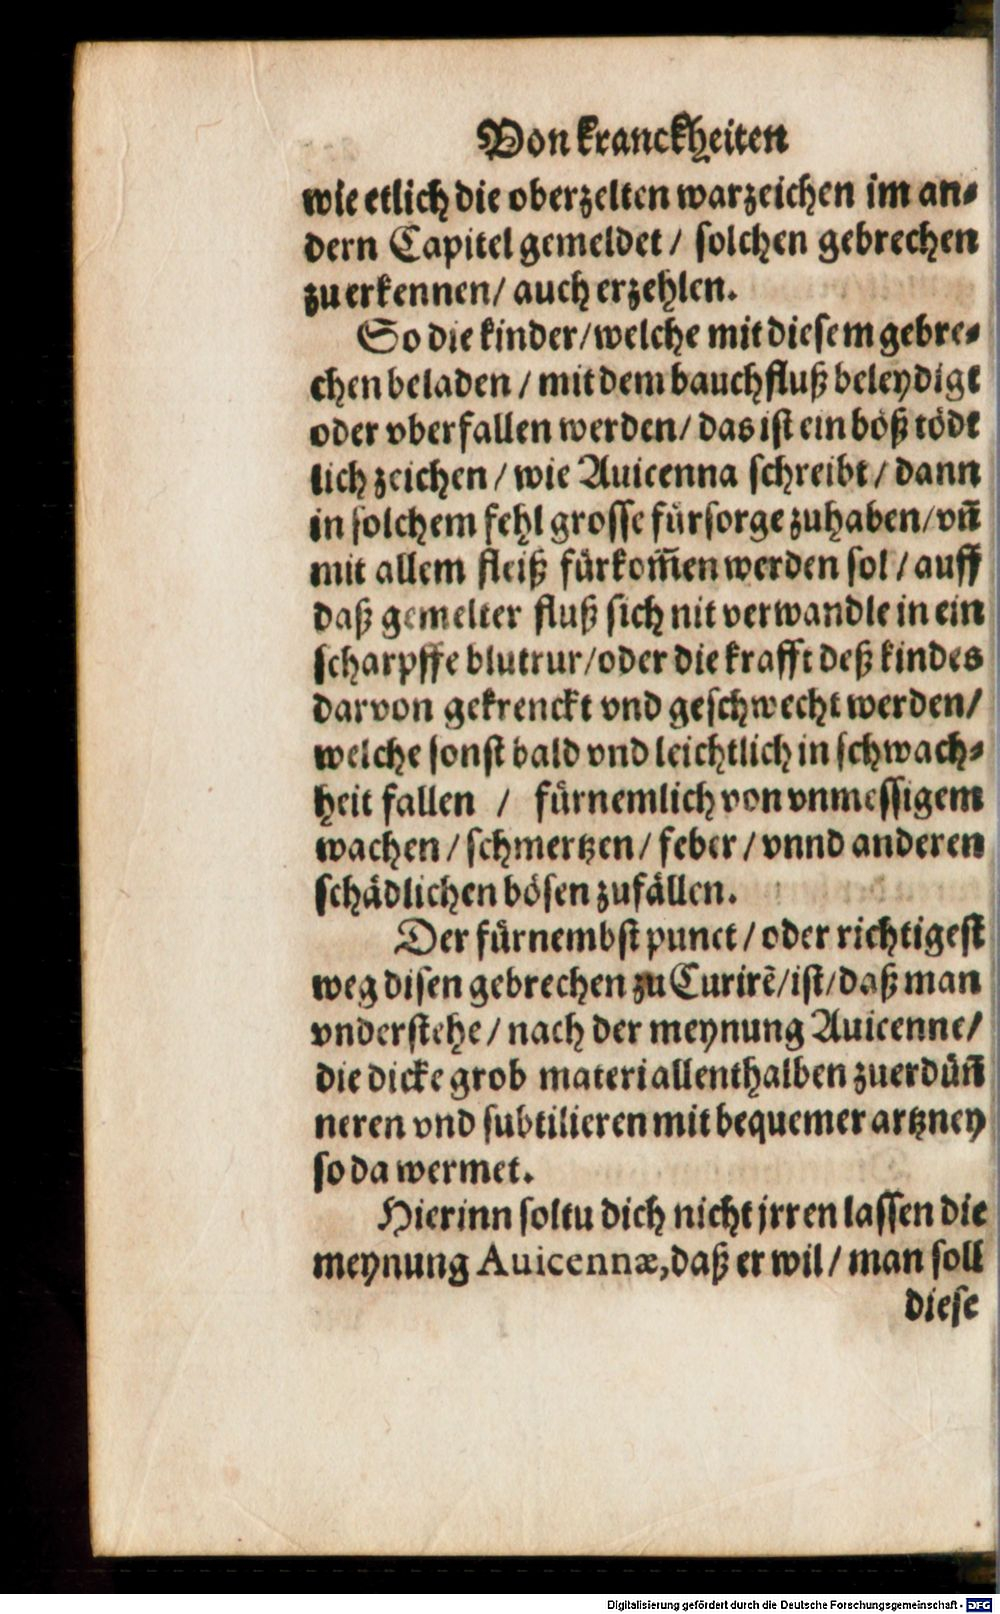 Von kranckheiten
wie etlich die oberzelten warzeichen im an⸗
dern Capitel gemeldet / solchen gebrechen
zu erkennen / auch erzehlen.
So die kinder / welche mit diesem gebre⸗
chen beladen / mit dem bauchfluß beleydigt
oder vberfallen werden / das ist ein böß tödt
lich zeichen / wie Auicenna schreibt / dann
in solchem fehl grosse fürsorge zuhaben / vñ
mit allem fleiß fürkom̃en werden sol / auff
daß gemelter fluß sich nit verwandle in ein
scharpffe blutrur / oder die krafft deß kindes
darvon gekrenckt vnd geschwecht werden /
welche sonst bald vnd leichtlich in schwach⸗
heit fallen / fürnemlich von vnmessigem
wachen / schmertzen / feber / vnnd anderen
schädlichen bösen zufällen.
Der fürnembst punct / oder richtigest
weg disen gebrechen zu Curirẽ / ist / daß man
vnderstehe / nach der meynung Auicenne /
die dicke grob materi allenthalben zuerdün̄
neren vnd subtilieren mit bequemer artzney
so da wermet.
Hierinn soltu dich nicht jrren lassen die
meynung Auicennæ, daß er wil / man soll
diese
Digitalisierung gefördert durch die Deutsche Forschungsgemeinschaft - DFG